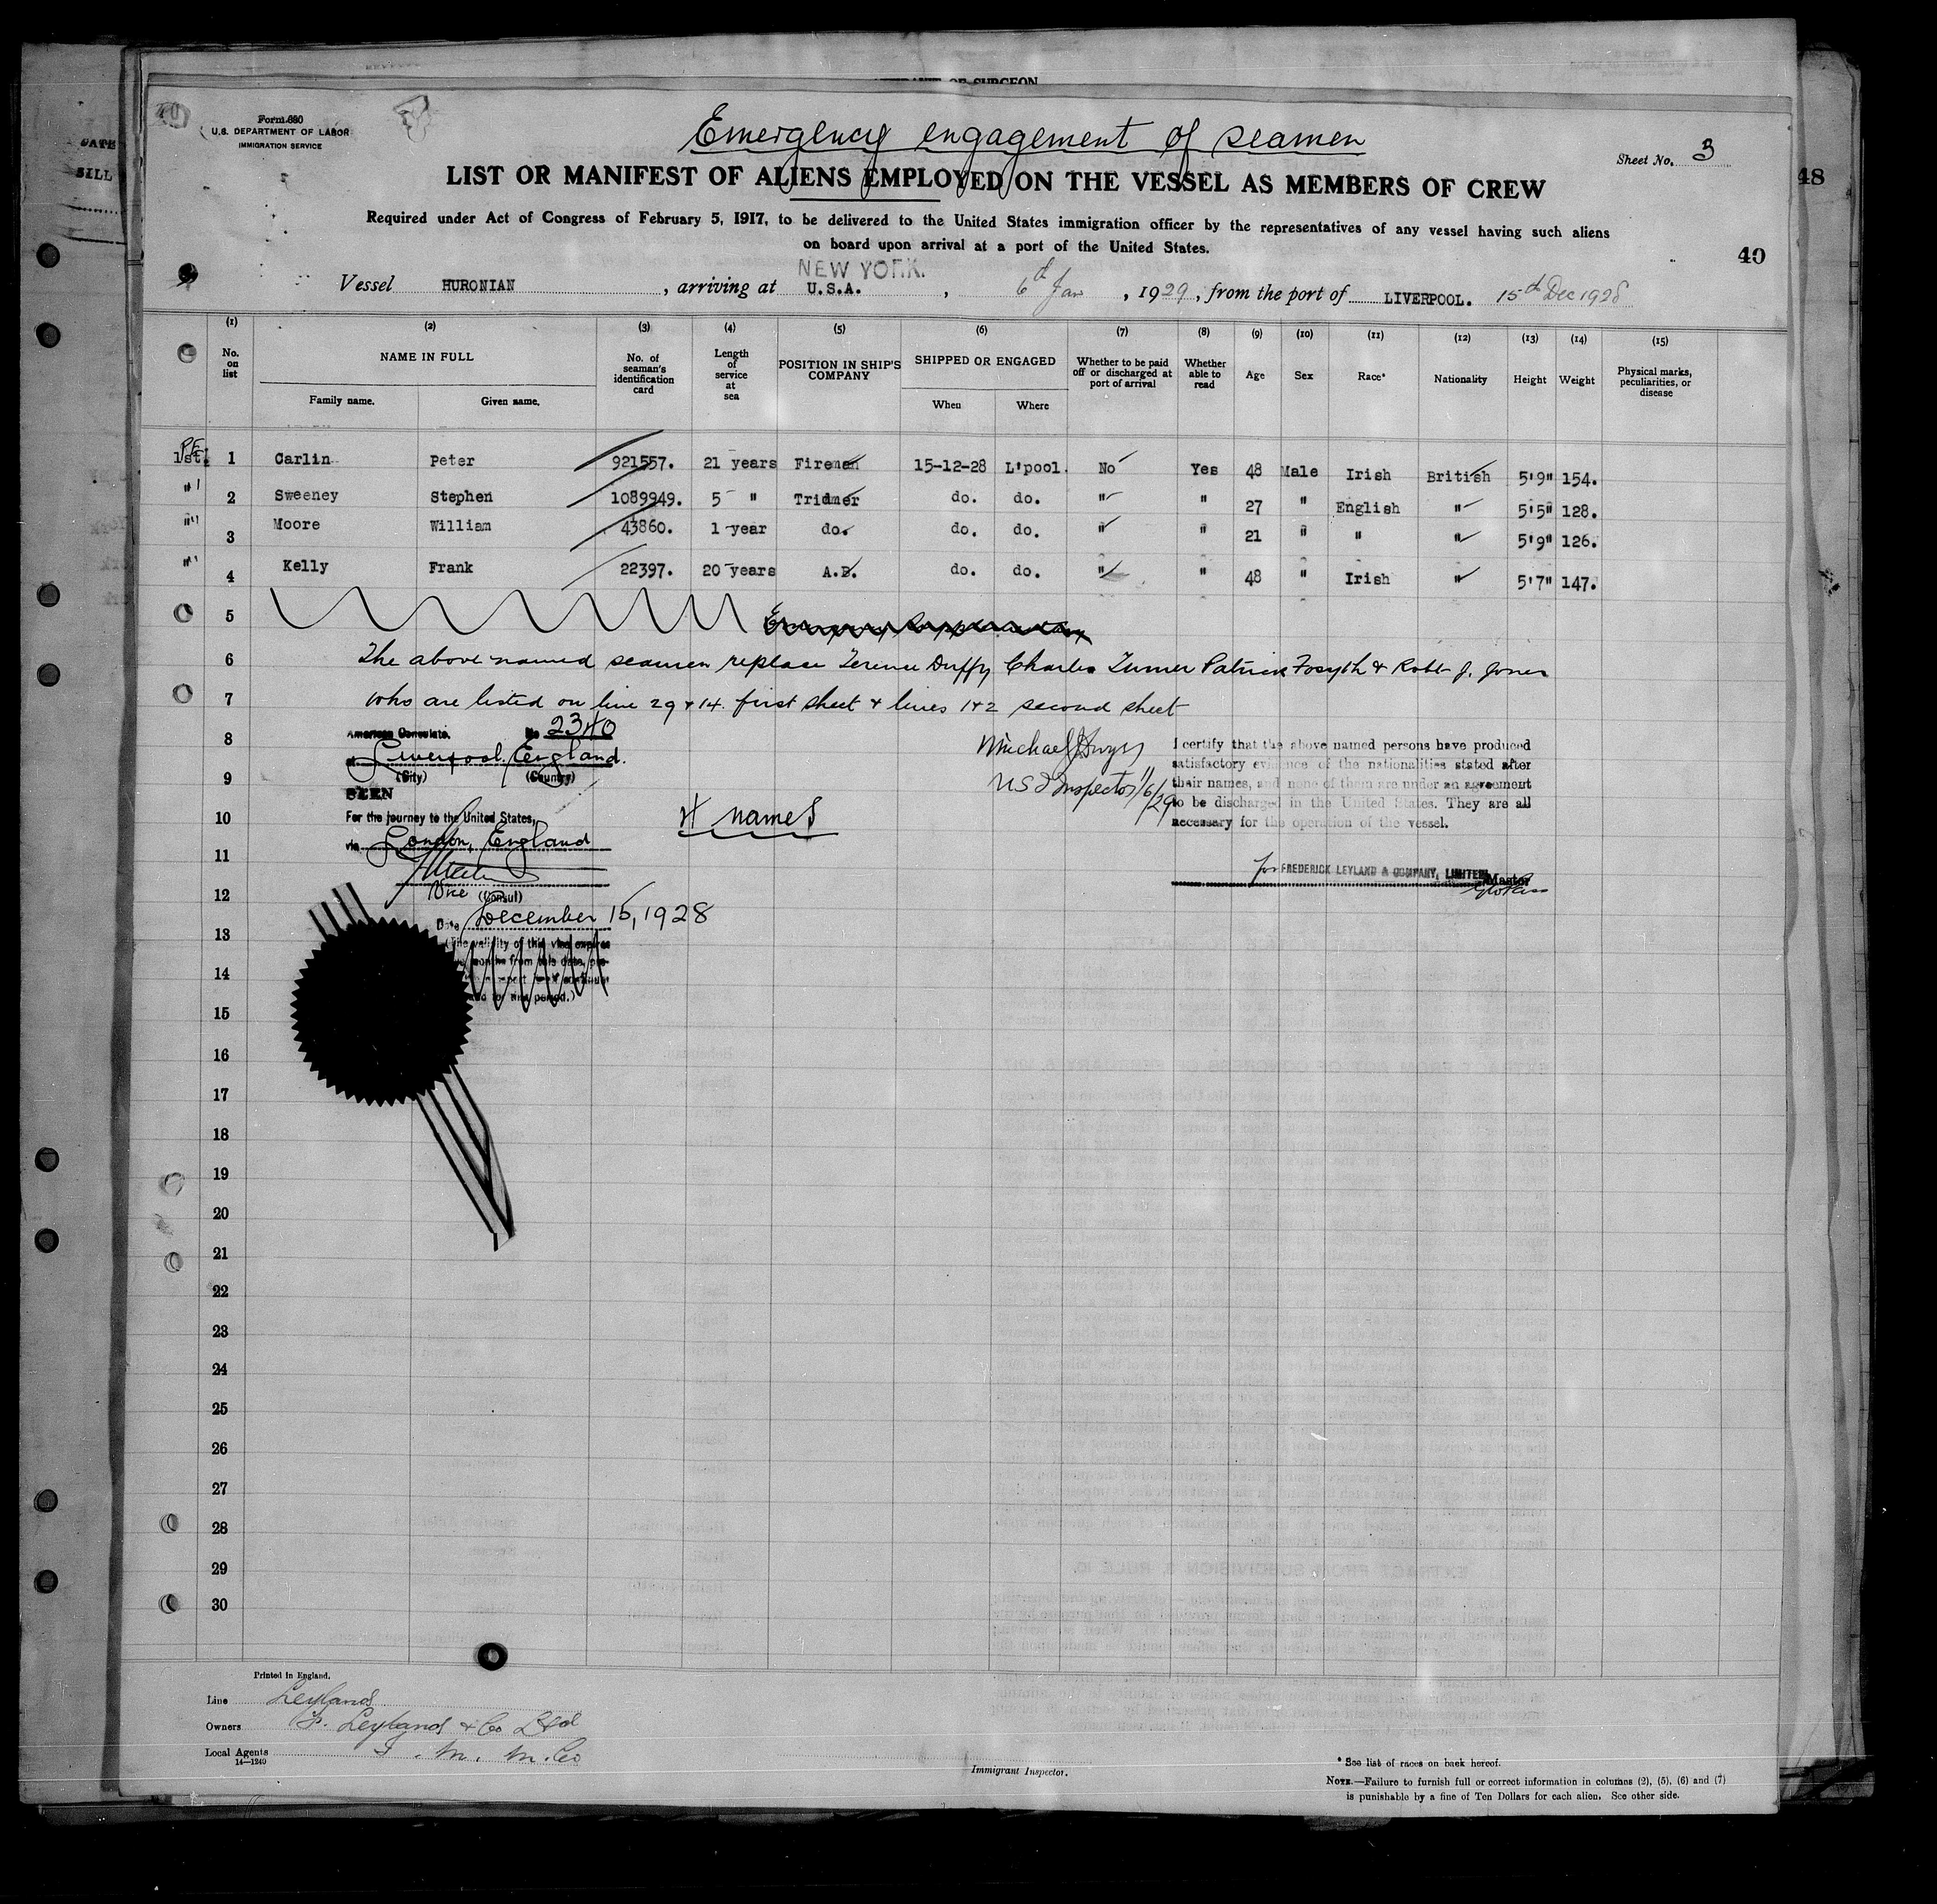 DATE
SILL
48
OF SURGEON
Form 680
U.S. DEPARTMENT OF LABOR
IMMIGRATION SERVICE
Emergency engagement of seamen
Sheet No. 3
LIST OR MANIFEST OF ALIENS EMPLOYED ON THE VESSEL AS MEMBERS OF CREW
Required under Act of Congress of February 5, 1917, to be delivered to the United States immigration officer by the representatives of any vessel having such aliens
on board upon arrival at a port of the United States.
40
Vessel HURONIAN, arriving at NEW YORK. U.S.A., 6th Jan, 1929, from the port of LIVERPOOL. 15th Dec 1928
(1) (2) (3) (4) (5) (6) (7) (8) (9) (10) (11) (12) (13) (14) (15)
No. on list
NAME IN FULL
Family name. Given name.
No. of seaman's identification card
Length of service at sea
POSITION IN SHIP'S COMPANY
SHIPPED OR ENGAGED
When Where
Whether to be paid off or discharged at port of arrival
Whether able to read
Age
Sex
Race*
Nationality
Height
Weight
Physical marks, peculiarities, or disease
1st 1 Carlin Peter 921557. 21 years Fireman 15-12-28 L'pool. No Yes 48 Male Irish British 5'9" 154.
" 2 Sweeney Stephen 1089949. 5 " Trimmer do. do. " " 27 " English " 5'5" 128.
" 3 Moore William 43860. 1 year do. do. do. " " 21 " " " 5'9" 126.
" 4 Kelly Frank 22397. 20 years A.B. do. do. " " 48 " Irish " 5'7" 147.
5
6 The above named seamen replace Terence Duffy Charles Turner Patrick Fosyth & Robt J. Jones
7 who are listed on line 29 & 14 first sheet & lines 1 & 2 second sheet
8
9
10
11
12
13
14
15
16
17
18
19
20
21
22
23
24
25
26
27
28
29
30
American Consulate. No 2340
at Liverpool, England.
(City) (Country)
SEEN
For the journey to the United States,
via London, England
Vice (Consul)
Date December 15, 1928
(The validity of this visa expires
months from this date, pro-
period.)
4 names
Michael J Dwyer
US I Inspector 1/6/29
I certify that the above named persons have produced
satisfactory evidence of the nationalities stated after
their names, and none of them are under an agreement
to be discharged in the United States. They are all
necessary for the operation of the vessel.
for FREDERICK LEYLAND & COMPANY, LIMITED, Master
Printed in England.
Line Leyland
Owners F. Leyland & Co Ltd
Local Agents I. M. M. Co
14—1240
Immigrant Inspector.
* See list of races on back hereof.
NOTE.—Failure to furnish full or correct information in columns (2), (5), (6) and (7)
is punishable by a fine of Ten Dollars for each alien. See other side.